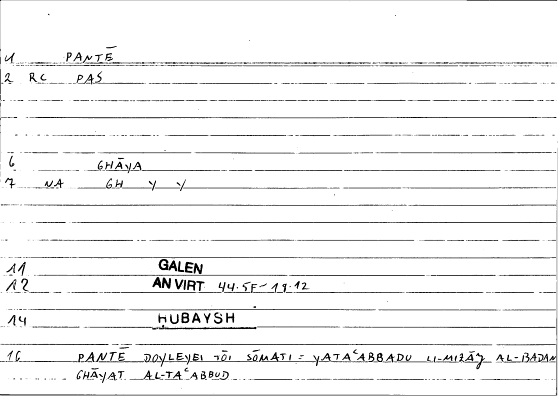 1 PANTĒ
2 RC PAS
6 GHĀYA
7 NA GH Y Y
11 GALEN
12 AN VIRT 44.5F-19.12
14 ḤUBAYSH
16 PANTĒ DOYLEYEI TŌI SŌMATI = YATAᶜABBADU LI-MIZĀǦ AL-BADAN
GHĀYAT AL-TAᶜABBUD